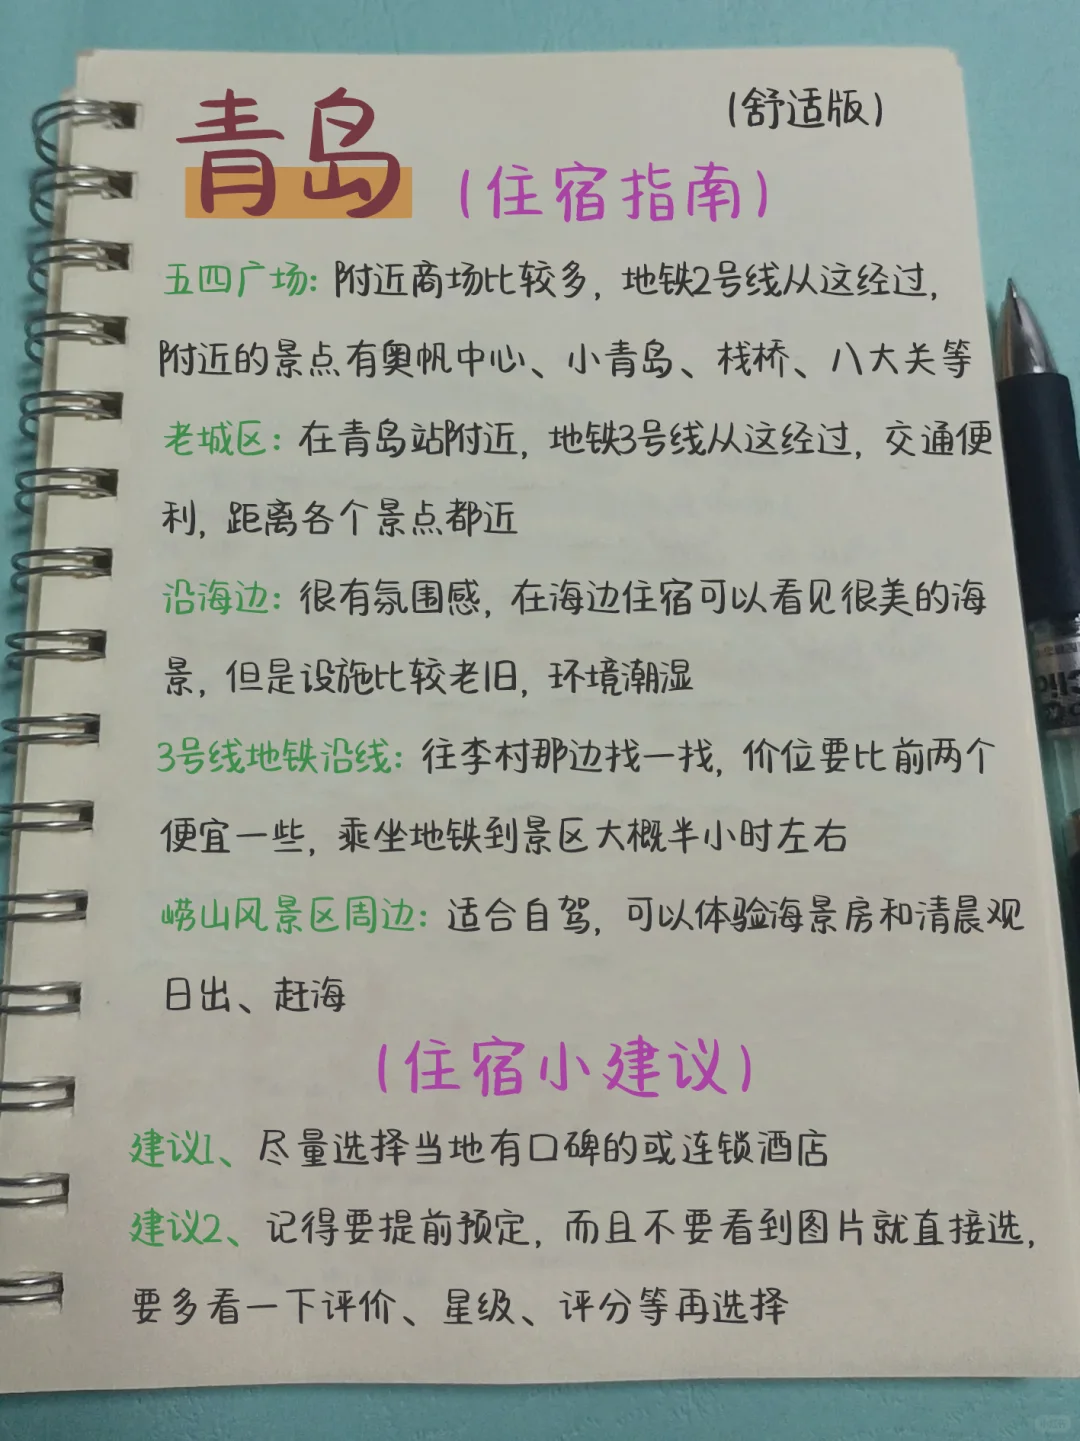 青岛
(舒适版)
(住宿指南)
五四广场: 附近商场比较多, 地铁2号线从这经过,
附近的景点有奥帆中心、小青岛、栈桥、八大关等
老城区: 在青岛站附近, 地铁3号线从这经过, 交通便
利, 距离各个景点都近
沿海边: 很有氛围感, 在海边住宿可以看见很美的海
景, 但是设施比较老旧, 环境潮湿
3号线地铁沿线: 往李村那边找一找, 价位要比前两个
便宜一些, 乘坐地铁到景区大概半小时左右
崂山风景区周边: 适合自驾, 可以体验海景房和清晨观
日出、赶海
(住宿小建议)
建议1、尽量选择当地有口碑的或连锁酒店
建议2、记得要提前预定, 而且不要看到图片就直接选,
要多看一下评价、星级、评分等再选择